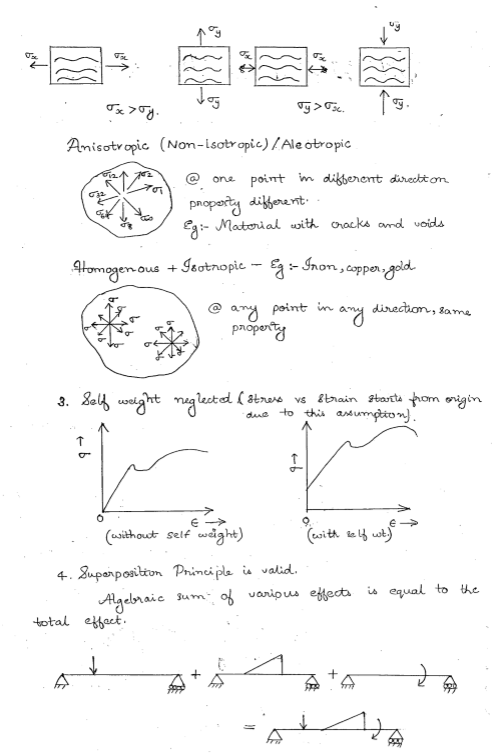 σy σy
σx σx σx σx
σx > σy. σy σy > σx. σy.
Anisotropic (Non-isotropic) / Aleotropic
σ12 σ2
σ32 σ1
σ8
@ one point in different direction
property different.
Eg:- Material with cracks and voids
Homogenous + Isotropic - Eg:- Iron, copper, gold
σ σ
σ σ σ
σ σ
@ any point in any direction, same
property
3. Self weight neglected (stress vs strain starts from origin
due to this assumption).
↑ ↑
σ σ
O ϵ → O ϵ →
(without self weight) (with self wt.)
4. Superposition Principle is valid.
Algebraic sum of various effects is equal to the
total effect.
+ +
=